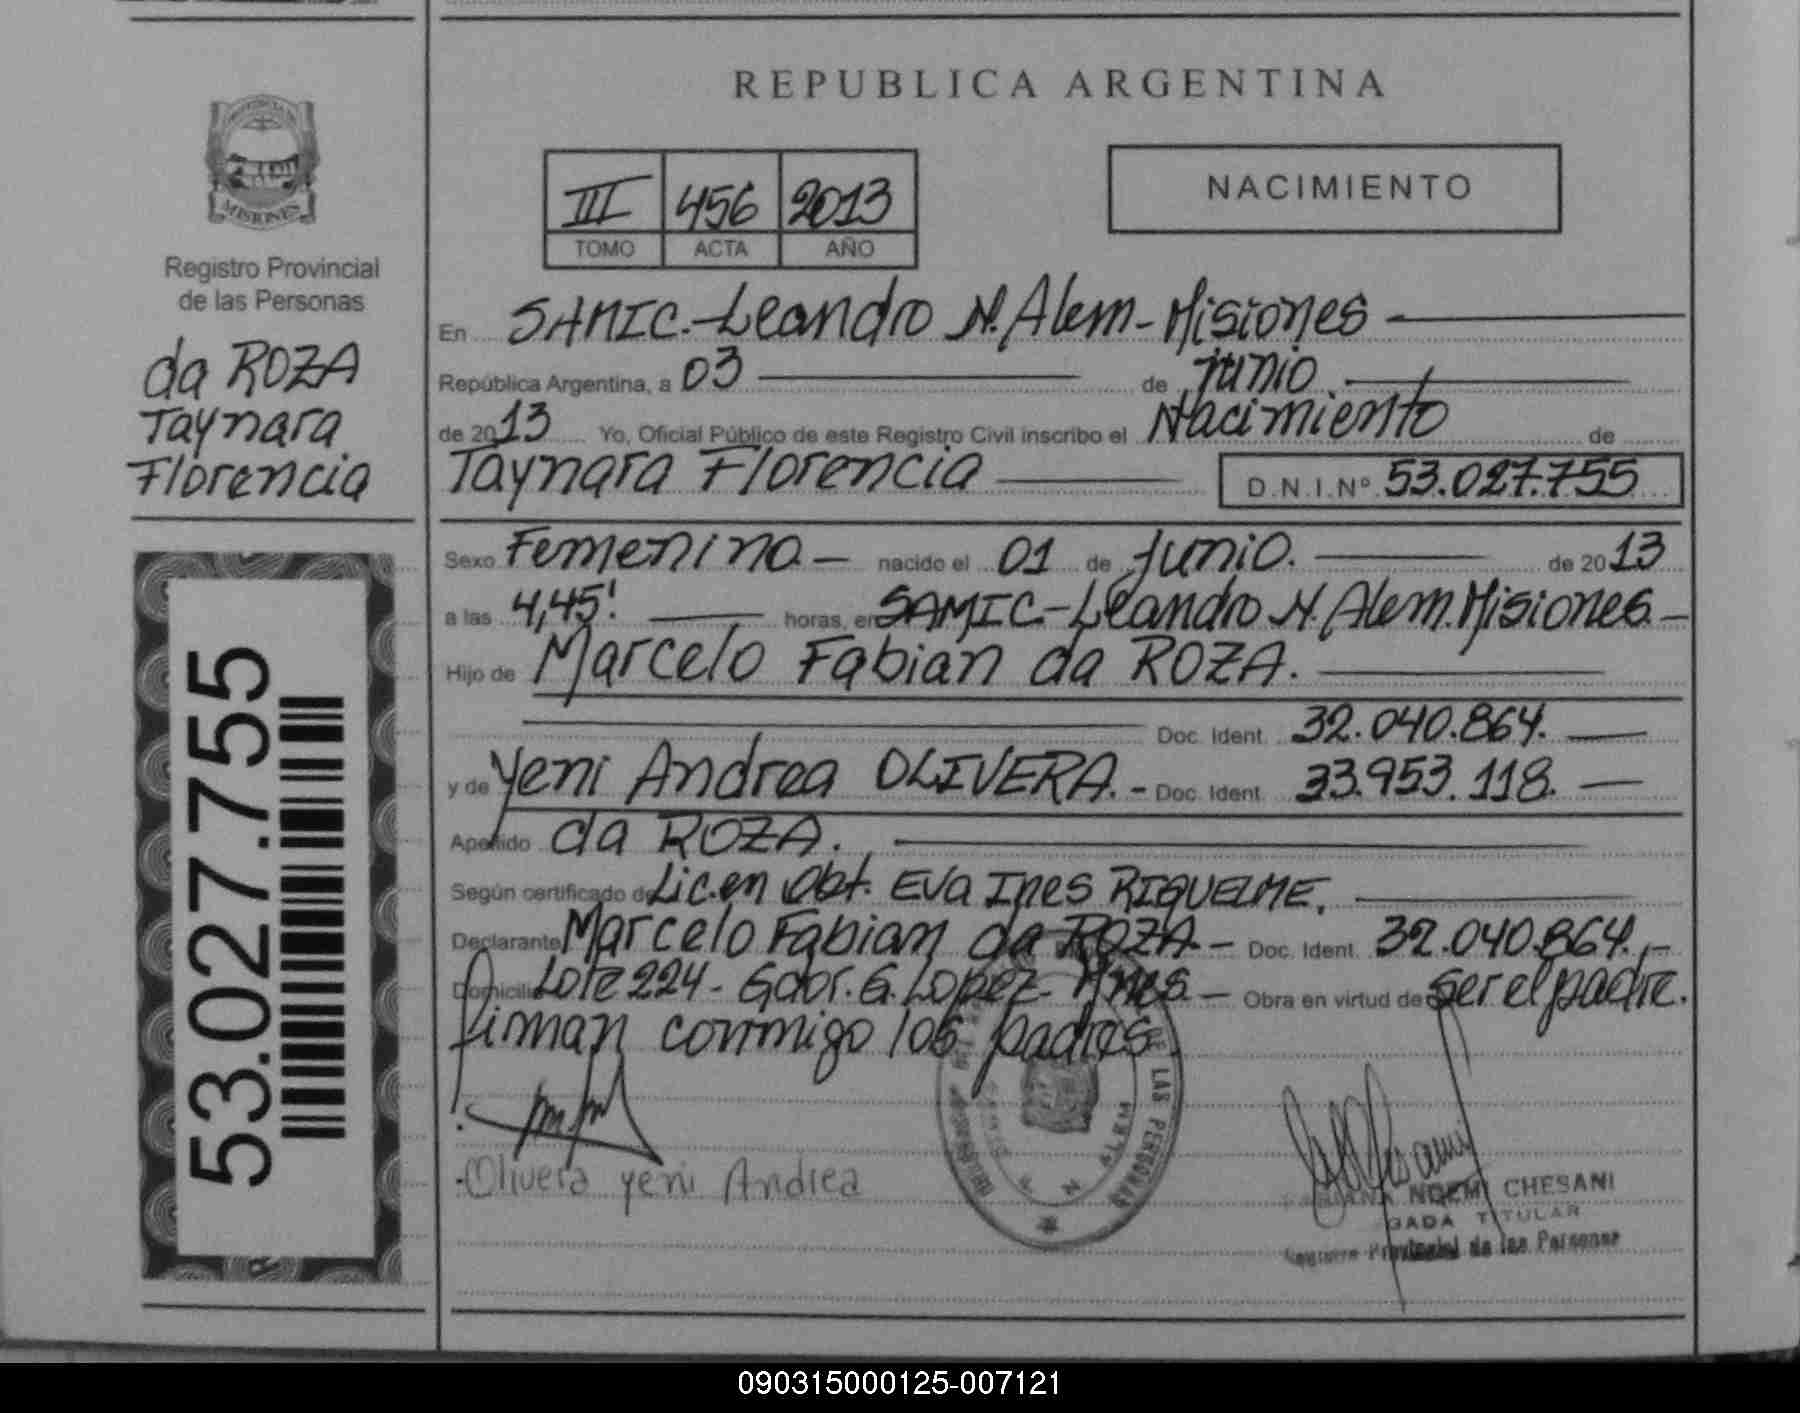 REPUBLICA ARGENTINA
NACIMIENTO
III 456 2013
TOMO ACTA AÑO
MISIONES
Registro Provincial
de las Personas
da ROZA
Taynara
Florencia
53.027.755
En SAMIC.-Leandro N. Alem-Misiones
República Argentina, a 03 de junio.
de 2013 Yo, Oficial Público de este Registro Civil inscribo el Nacimiento de
Taynara Florencia D.N.I.Nº 53.027.755
Sexo Femenino.- nacido el 01 de Junio. de 2013
a las 4,45'. horas, en SAMIC-Leandro N. Alem. Misiones.-
Hijo de Marcelo Fabian da ROZA.
Doc. Ident. 32.040.864.
y de Yeni Andrea OLIVERA.- Doc. Ident. 33.953.118.
Apellido da ROZA.
Según certificado de Lic. en Obt. Eva Ines RIQUELME.
Declarante Marcelo Fabian da ROZA.- Doc. Ident. 32.040.864.-
Domicilio Lote 224- Gdor. G. Lopez- Mnes.- Obra en virtud de ser el padre.
firman conmigo los padres
Olivera yeni Andrea
DE LAS PERSONAS
N ALEM
NOEMI CHESANI
GADA TITULAR
Provincial de las Personas
090315000125-007121